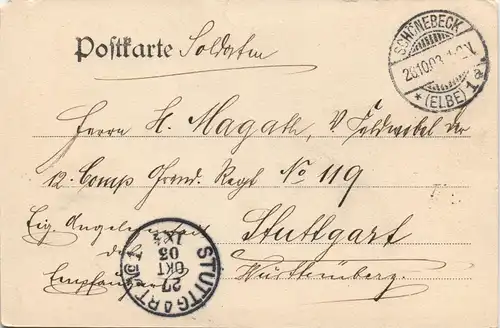 Postkarte Soldaten
SCHÖNEBECK
26.10.03
* (ELBE) 1a
Herrn H. Magath, V. Feldwebel der
12. Comp Grend. Regt No 119
Eig. Angelegenheit
des
Empfängers
Stuttgart
Württemberg.
STUTTGART
27
OKT
03